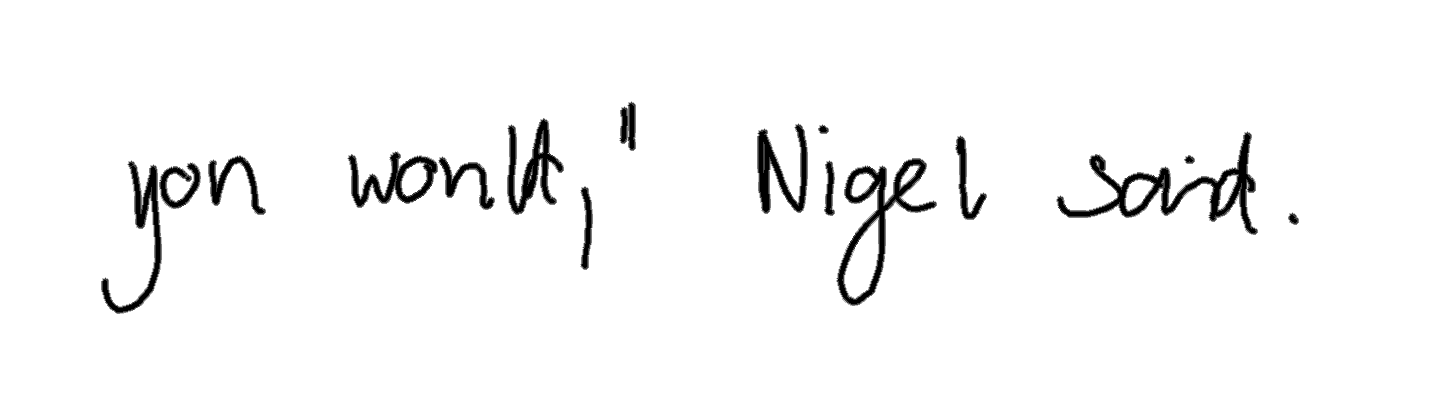 you would," Nigel said.